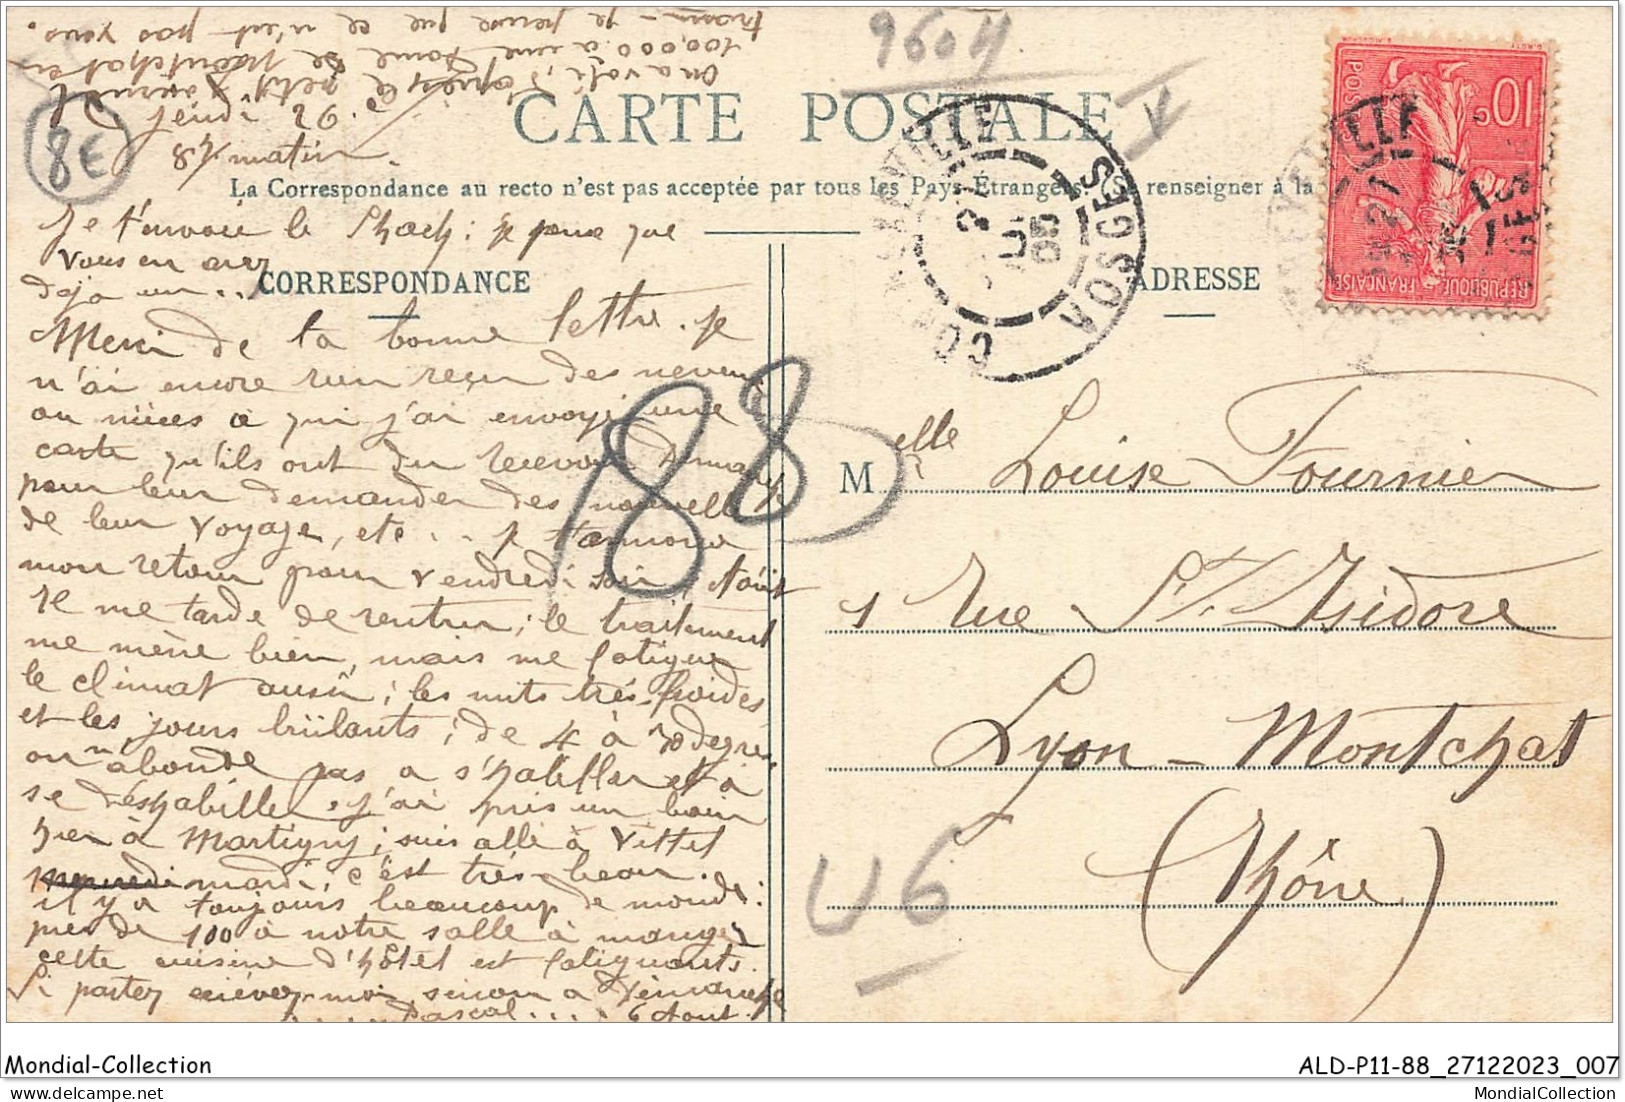 On a volé, d'après le petit Journal
100,000 à une Dame de Montchat en
tram — je pense que ce n'est pas vous.
9604
8€
jeudi 26.
8h matin.
CARTE POSTALE
La Correspondance au recto n'est pas acceptée par tous les Pays Étrangers. (Se renseigner à la
CORRESPONDANCE
ADRESSE
VOSGES
POSTES
10c
RÉPUBLIQUE FRANÇAISE
Je t'envoie le Shack : je pense que
vous en avez
déjà un...
Merci de ta bonne lettre. je
n'ai encore rien reçu des neveux
ou nièces à qui j'ai envoyé une
carte qu'ils ont du recevoir
pour leur demander des nouvelles
de leur voyage, etc... je t'annonce
mon retour pour vendredi soir Août
Il me tarde de rentrer ; le traitement
me mène bien, mais me fatigue
le climat aussi ; les nuits très froides
et les jours brûlants ; de 4 à 30 degrés
on n'aboutit pas à s'habiller et à
se déshabiller. j'ai pris un bain
hier à Martigny ; suis allé à Vittel
mercredi mardi, c'est très beau.
il y a toujours beaucoup de monde :
près de 100 à notre salle à manger
cette cuisine d'hôtel est fatiguante.
Si partez écrivez-moi, sinon à Dimanche
Pascal.... 6 Août.
88
Melle Louise Fournier
1 rue St. Isidore
Lyon - Montchat
(Rhône)
U6
Mondial-Collection
ALD-P11-88_27122023_007
MondialCollection